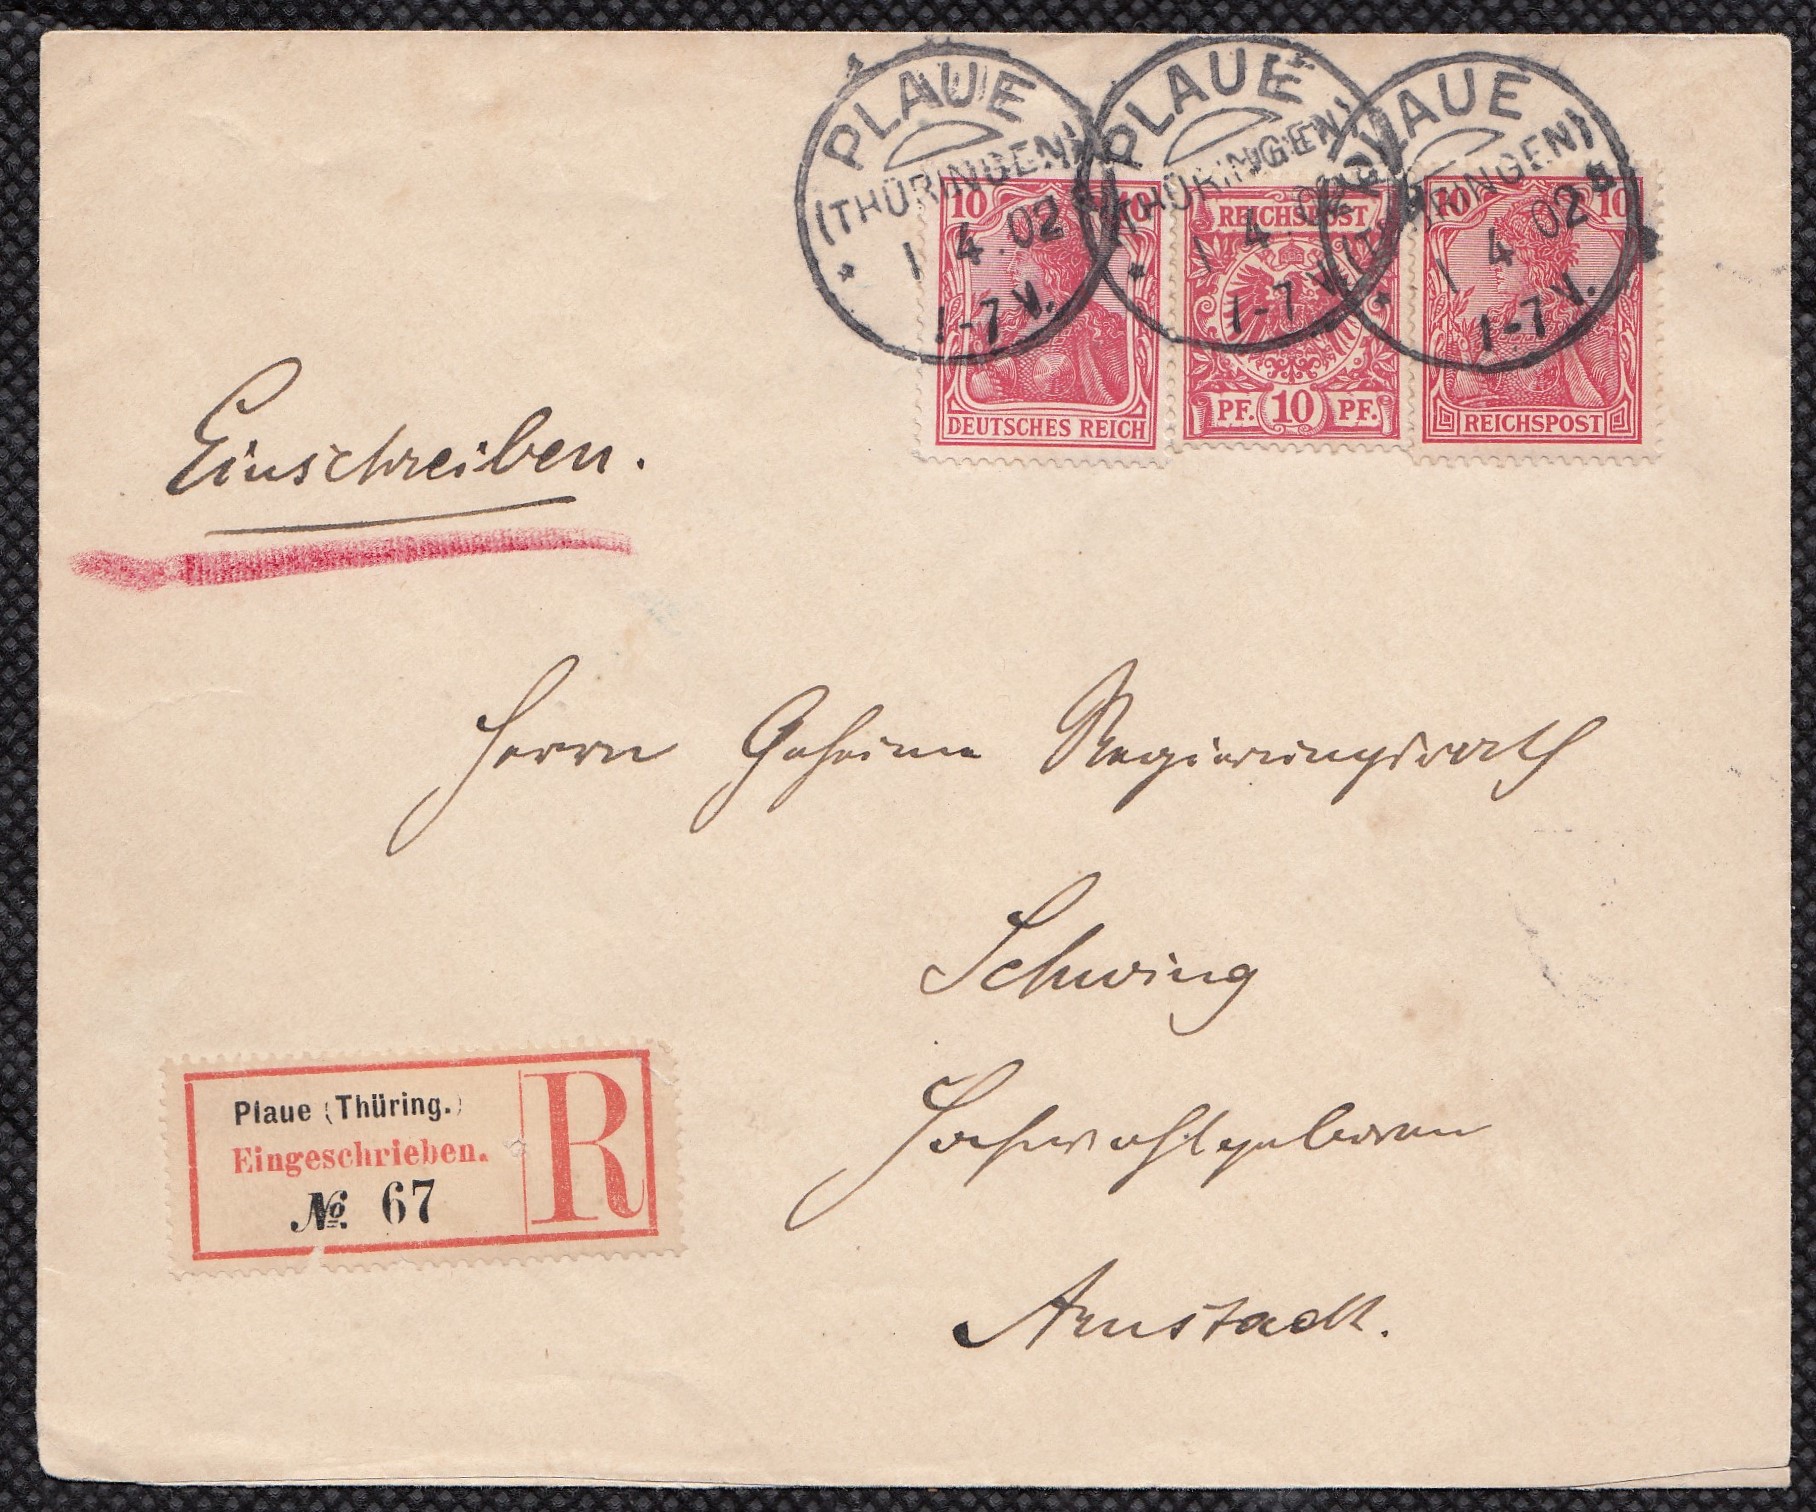 PLAUE
(THÜRINGEN)
1 4.02
1-7 V.
PLAUE
(THÜRINGEN)
1 4.02
1-7 V.
PLAUE
(THÜRINGEN)
1 4 02
1-7 V.
10 10
DEUTSCHES REICH
REICHSPOST
PF. 10 PF.
10 10
REICHSPOST
Einschreiben.
Herrn Geheime Regierungsrath
Schwing
Hochwohlgeboren
Arnstadt.
Plaue (Thüring.)
Eingeschrieben.
No. 67
R